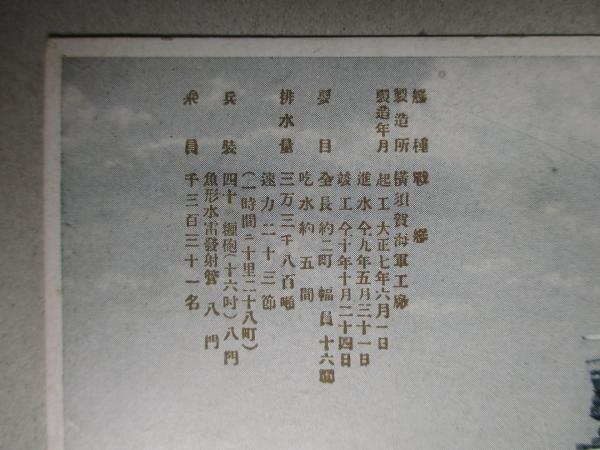 艦種 戰艦
製造所 横須賀海軍工廠
製造年月 起工 大正七年六月一日
進水 仝九年五月三十一日
竣工 仝十年十月二十四日
要目 全長 約二町 幅員 十六間
吃水 約五間
排水量 三万三千八百噸
速力 二十三節
(一時間ニ十里二十八町)
兵裝 四十糎砲(十六吋)八門
魚形水雷發射管 八門
乘員 千三百三十一名